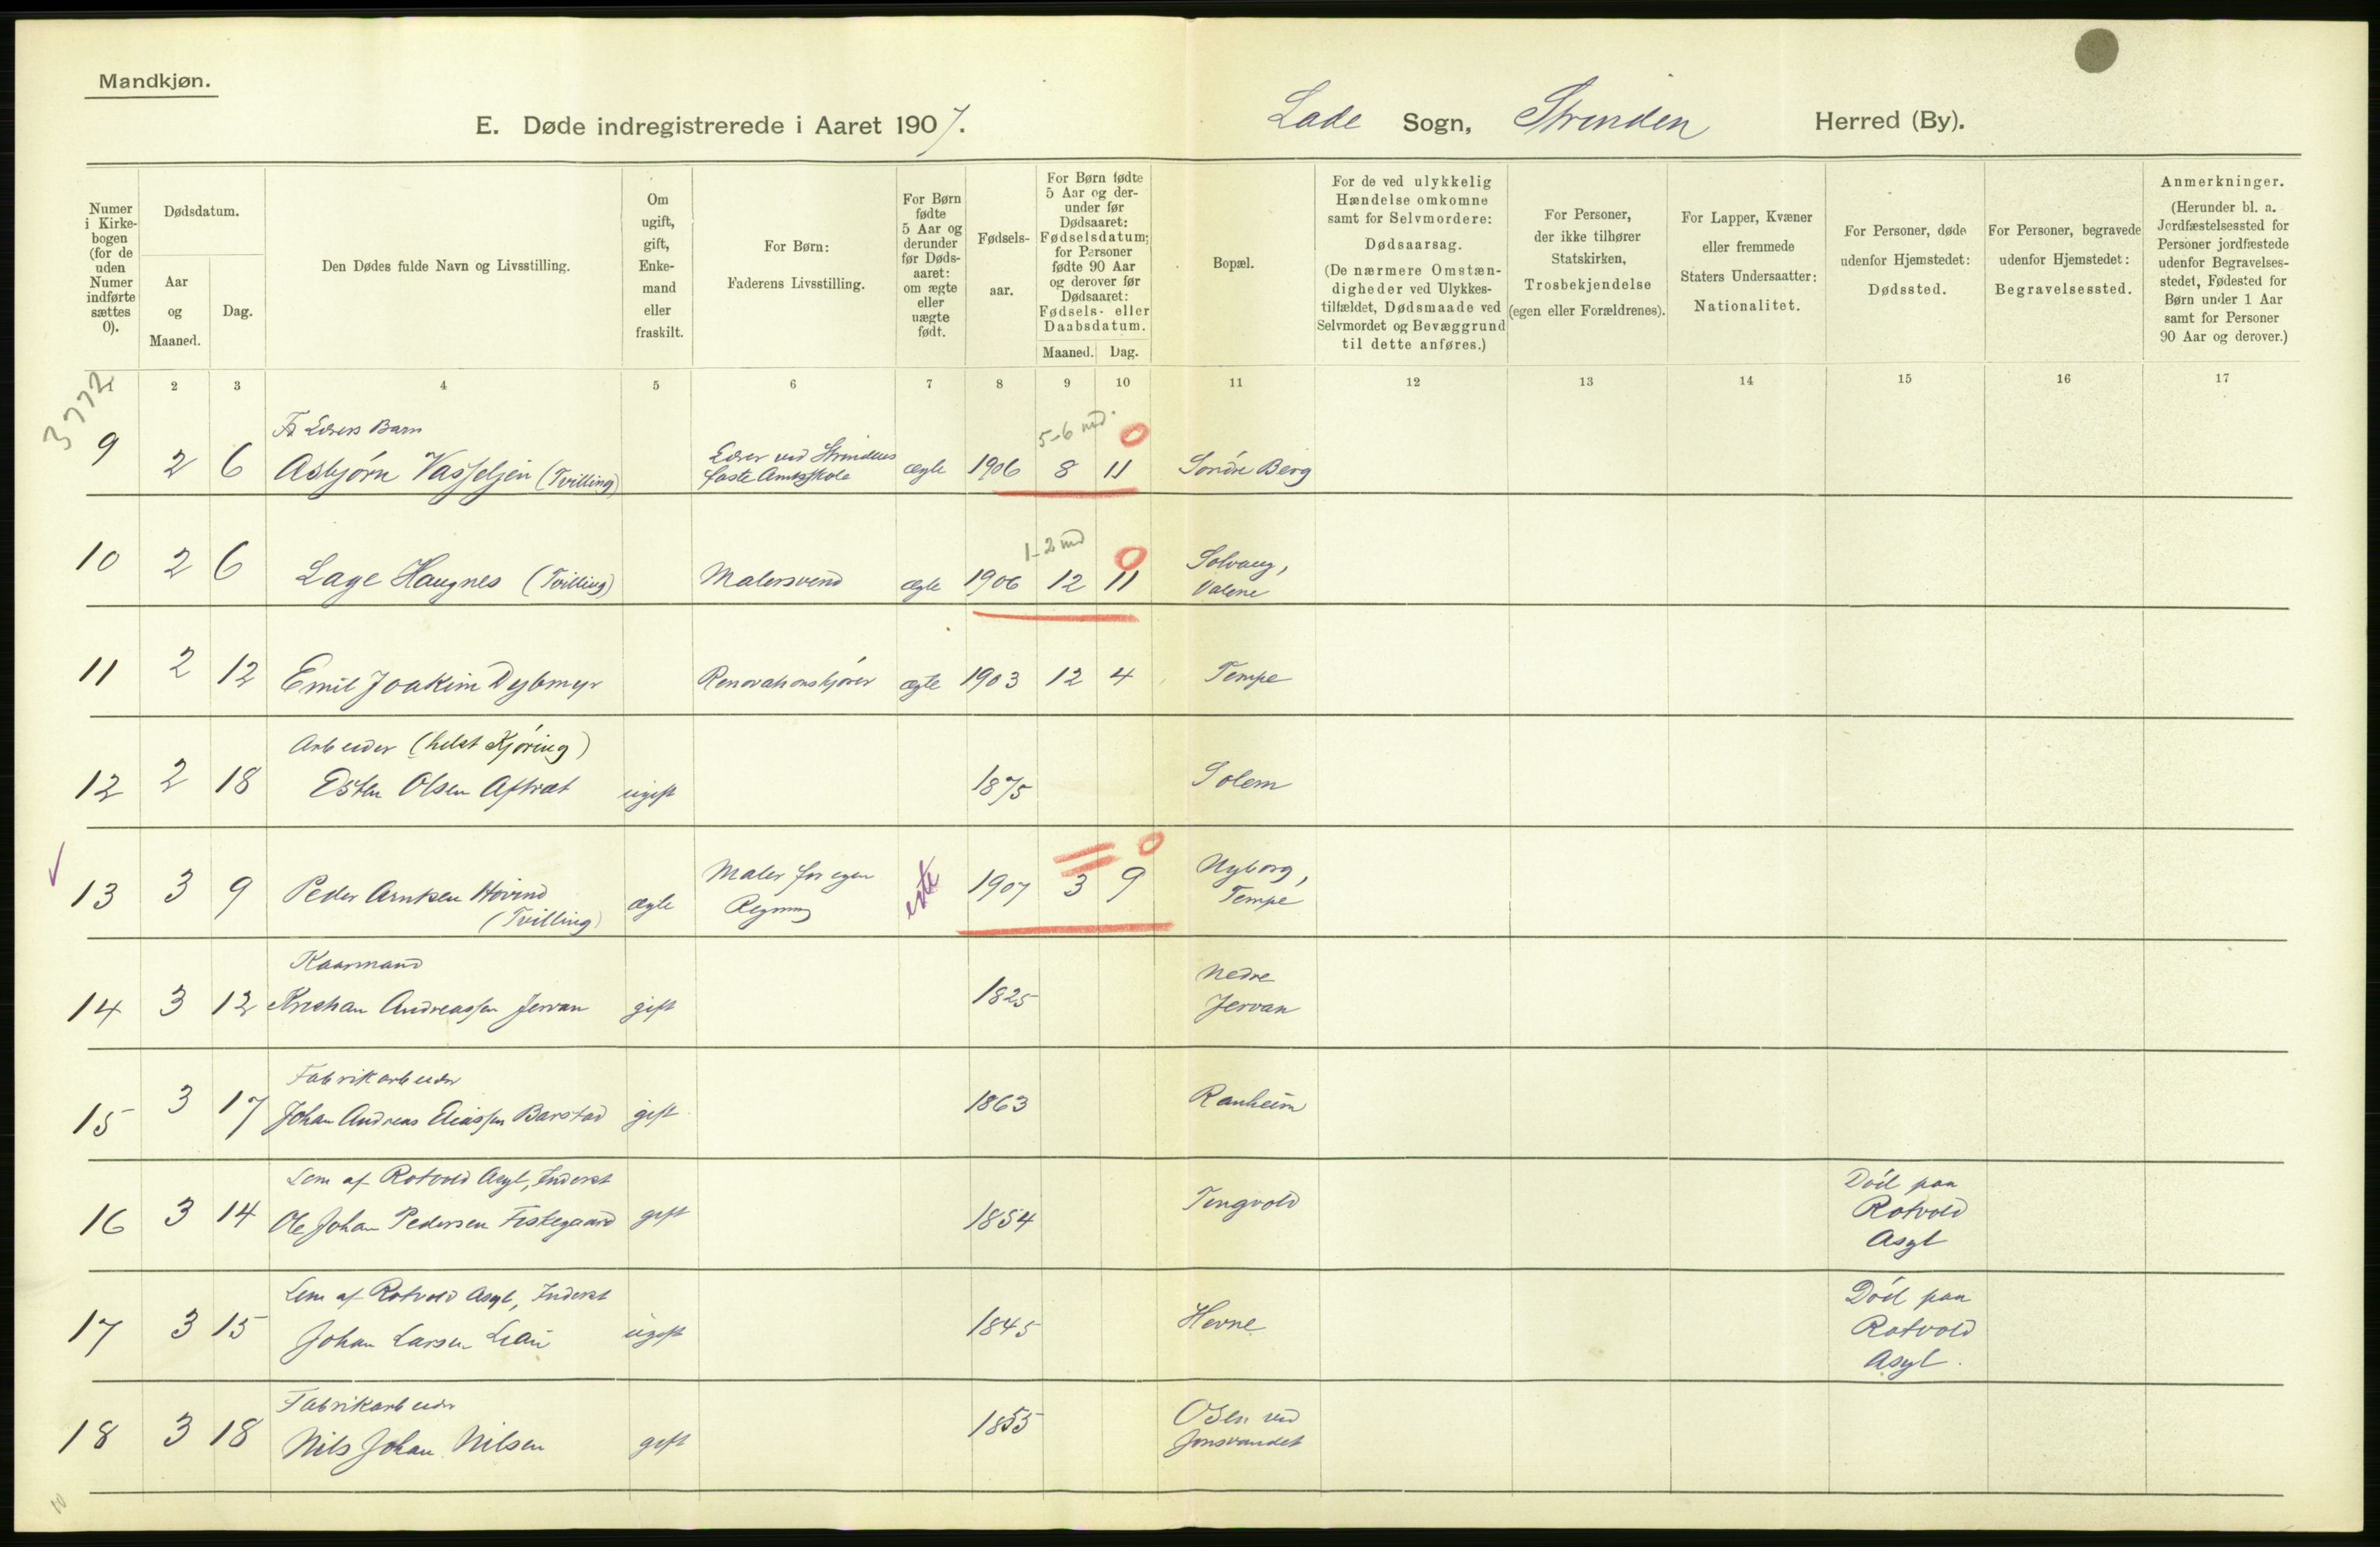 Mandkjøn.
E. Døde indregistrerede i Aaret 1907. Lade Sogn, Strinden Herred (By).
Numer i Kirkebogen (for de uden Numer indførte sættes 0).
Dødsdatum.
Aar og Maaned.
Dag.
Den Dødes fulde Navn og Livsstilling.
Om ugift, gift, Enkemand eller fraskilt.
For Børn: Faderens Livsstilling.
For Børn fødte 5 Aar og derunder før Dødsaaret: om ægte eller uægte født.
Fødselsaar.
For Børn fødte 5 Aar og derunder før Dødsaaret: Fødselsdatum; for Personer fødte 90 Aar og derover før Dødsaaret: Fødsels- eller Daabsdatum.
Maaned. Dag.
Bopæl.
For de ved ulykkelig Hændelse omkomne samt for Selvmordere: Dødsaarsag. (De nærmere Omstændigheder ved Ulykkestilfældet, Dødsmaade ved Selvmordet og Bevæggrund til dette anføres.)
For Personer, der ikke tilhører Statskirken, Trosbekjendelse (egen eller Forældrenes).
For Lapper, Kvæner eller fremmede Staters Undersaatter: Nationalitet.
For Personer, døde udenfor Hjemstedet: Dødssted.
For Personer, begravede udenfor Hjemstedet: Begravelsessted.
Anmerkninger. (Herunder bl. a. Jordfæstelsessted for Personer jordfæstede udenfor Begravelsesstedet, Fødested for Børn under 1 Aar samt for Personer 90 Aar og derover.)
2 3 4 5 6 7 8 9 10 11 12 13 14 15 16 17
3772
Lærers Barn
5-6 md. 0
9 2 6 Asbjørn Vasseljen (Tvilling) Lærer ved Strindens faste Amtsskole ægte 1906 8 11 Søndre Berg
1-2 md 0
10 2 6 Lage Haugnes (Tvilling) Malersvend ægte 1906 12 11 Solvang,
11 2 12 Emil Joakim Dybmyr Renovationskjører ægte 1903 12 4 Tempe
Arbeider (helst Kjøring)
12 2 18 Esten Olsen ugift 1875 Solem
0
13 3 9 Peder Arntsen Hovind (Tvilling) ægte Maler for egen Regning 1907 3 9 Nyborg, Tempe
Kaarmand
14 3 12 Kristian Andreassen Jervan gift 1825 Nedre Jervan
Fabrikarbeider
15 3 17 Johan Andreas Eliassen Barstad gift 1863 Ranheim
Lem af Rotvold Asyl, Inderst
16 3 14 Ole Johan Pedersen Fiskegaard gift 1854 Tingvold Död paa Rotvold Asyl
Lem af Rotvold Asyl, Inderst
17 3 15 Johan Larsen Lian ugift 1845 Hevne Död paa Rotvold Asyl.
Fabrikarbeider
18 3 18 Nils Johan Nilsen gift 1855 Osen ved Jonsvandet
10